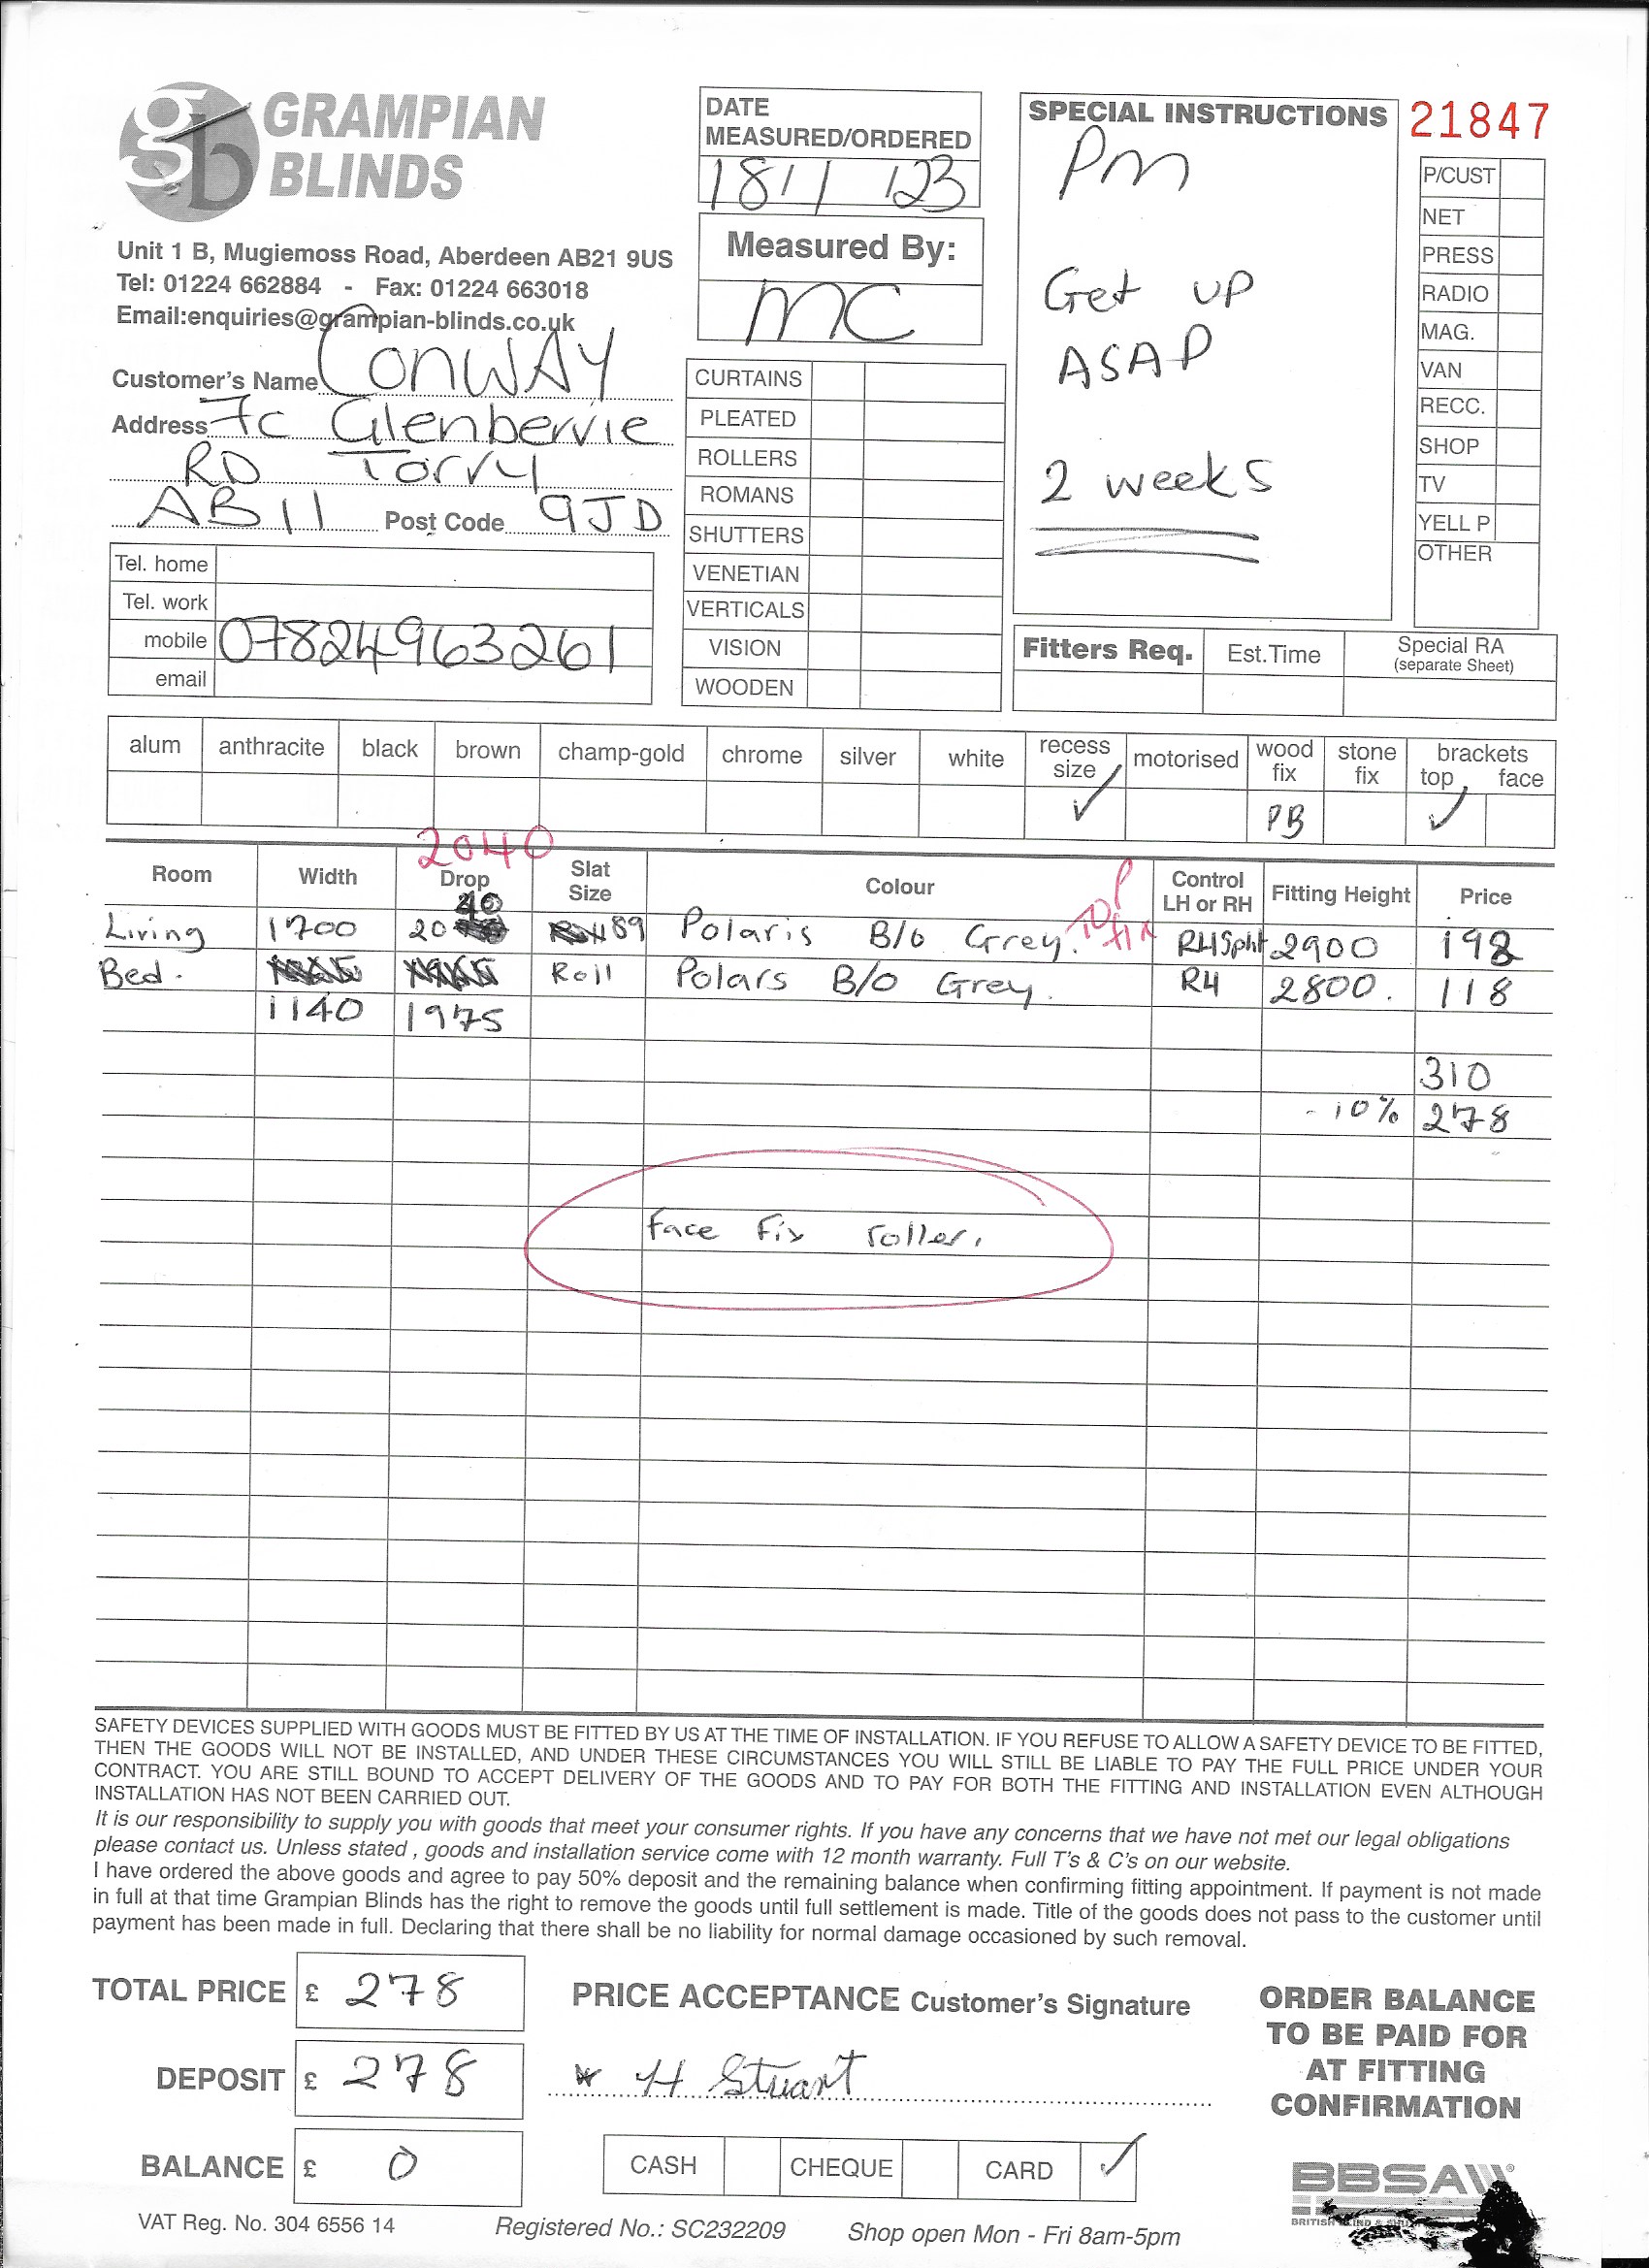 GRAMPIAN
BLINDS
Unit 1 B, Mugiemoss Road, Aberdeen AB21 9US
Tel: 01224 662884 - Fax: 01224 663018
Email:enquiries@grampian-blinds.co.uk
Customer's Name CONWAY
Address 7c Glenbervie
RD Torry
AB11 Post Code 9JD
Tel. home
Tel. work
mobile 07824963261
email
DATE
MEASURED/ORDERED
18/1/23
Measured By:
MC
CURTAINS
PLEATED
ROLLERS
ROMANS
SHUTTERS
VENETIAN
VERTICALS
VISION
WOODEN
SPECIAL INSTRUCTIONS
Pm
Get UP
ASAP
2 weeks
21847
P/CUST
NET
PRESS
RADIO
MAG.
VAN
RECC.
SHOP
TV
YELL P
OTHER
Fitters Req. Est.Time Special RA
(separate Sheet)
alum anthracite black brown champ-gold chrome silver white recess size ✓ motorised wood fix PB stone fix brackets top ✓ face
2040
Room Width Drop Slat Size Colour Control LH or RH Fitting Height Price
Living 1700 2040 89 Polaris B/o Grey. TOP FIX RH Split 2900 192
Bed. Roll Polars B/O Grey. RH 2800. 118
1140 1975
310
- 10% 278
Face Fix roller.
SAFETY DEVICES SUPPLIED WITH GOODS MUST BE FITTED BY US AT THE TIME OF INSTALLATION. IF YOU REFUSE TO ALLOW A SAFETY DEVICE TO BE FITTED,
THEN THE GOODS WILL NOT BE INSTALLED, AND UNDER THESE CIRCUMSTANCES YOU WILL STILL BE LIABLE TO PAY THE FULL PRICE UNDER YOUR
CONTRACT. YOU ARE STILL BOUND TO ACCEPT DELIVERY OF THE GOODS AND TO PAY FOR BOTH THE FITTING AND INSTALLATION EVEN ALTHOUGH
INSTALLATION HAS NOT BEEN CARRIED OUT.
It is our responsibility to supply you with goods that meet your consumer rights. If you have any concerns that we have not met our legal obligations
please contact us. Unless stated , goods and installation service come with 12 month warranty. Full T's & C's on our website.
I have ordered the above goods and agree to pay 50% deposit and the remaining balance when confirming fitting appointment. If payment is not made
in full at that time Grampian Blinds has the right to remove the goods until full settlement is made. Title of the goods does not pass to the customer until
payment has been made in full. Declaring that there shall be no liability for normal damage occasioned by such removal.
TOTAL PRICE £ 278
DEPOSIT £ 278
BALANCE £ 0
PRICE ACCEPTANCE Customer's Signature
* H Stuart
CASH CHEQUE CARD ✓
ORDER BALANCE
TO BE PAID FOR
AT FITTING
CONFIRMATION
BBSA
VAT Reg. No. 304 6556 14 Registered No.: SC232209 Shop open Mon - Fri 8am-5pm